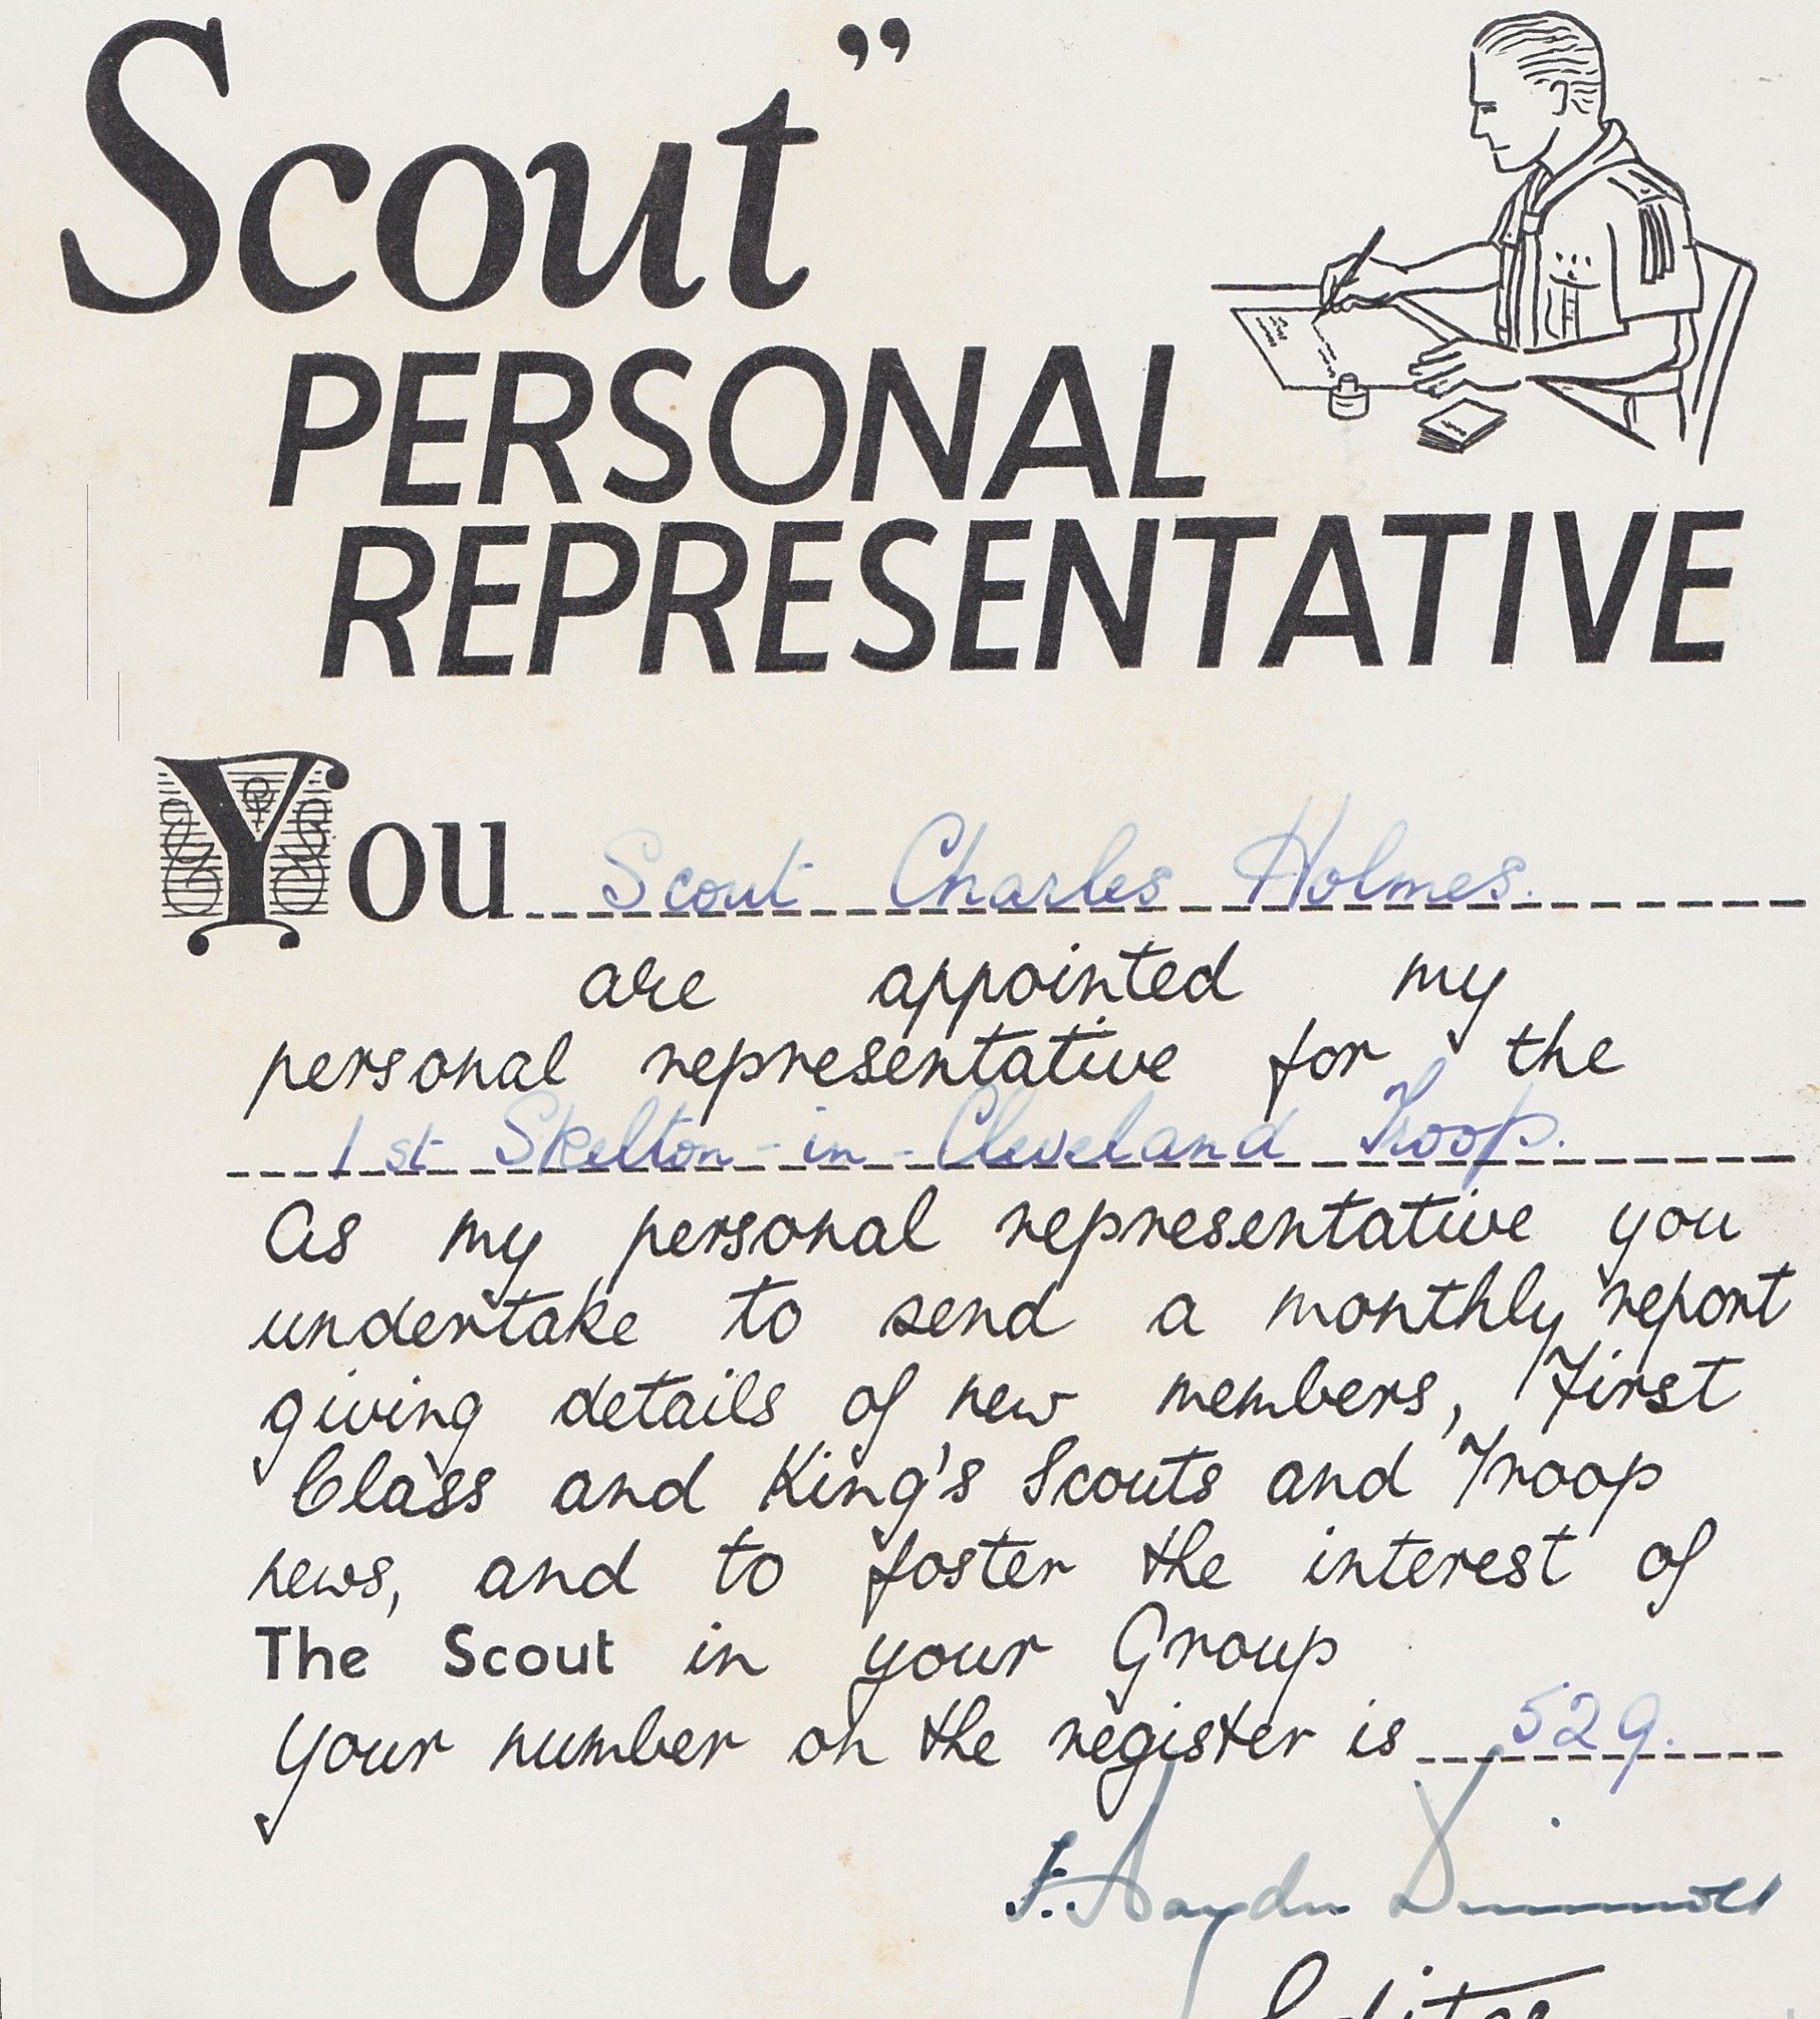 Scout"
PERSONAL
REPRESENTATIVE
You Scout Charles Holmes.
are appointed my
personal representative for the
1st Skelton-in-Cleveland Troop.
As my personal representative you
undertake to send a monthly report
giving details of new members, First
Class and King's Scouts and Troop
news, and to foster the interest of
The Scout in your Group
Your number on the register is 529.
F. Haydn Dimmock
Editor